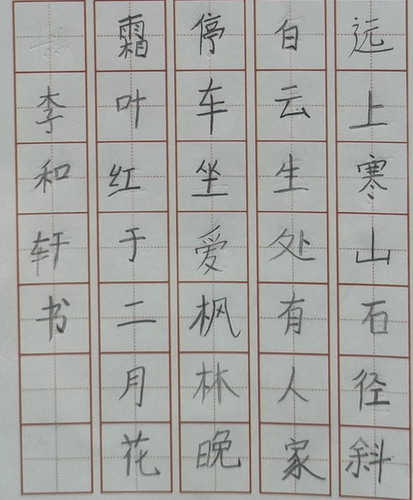 远上寒山石径斜
白云生处有人家
停车坐爱枫林晚
霜叶红于二月花
李和轩书